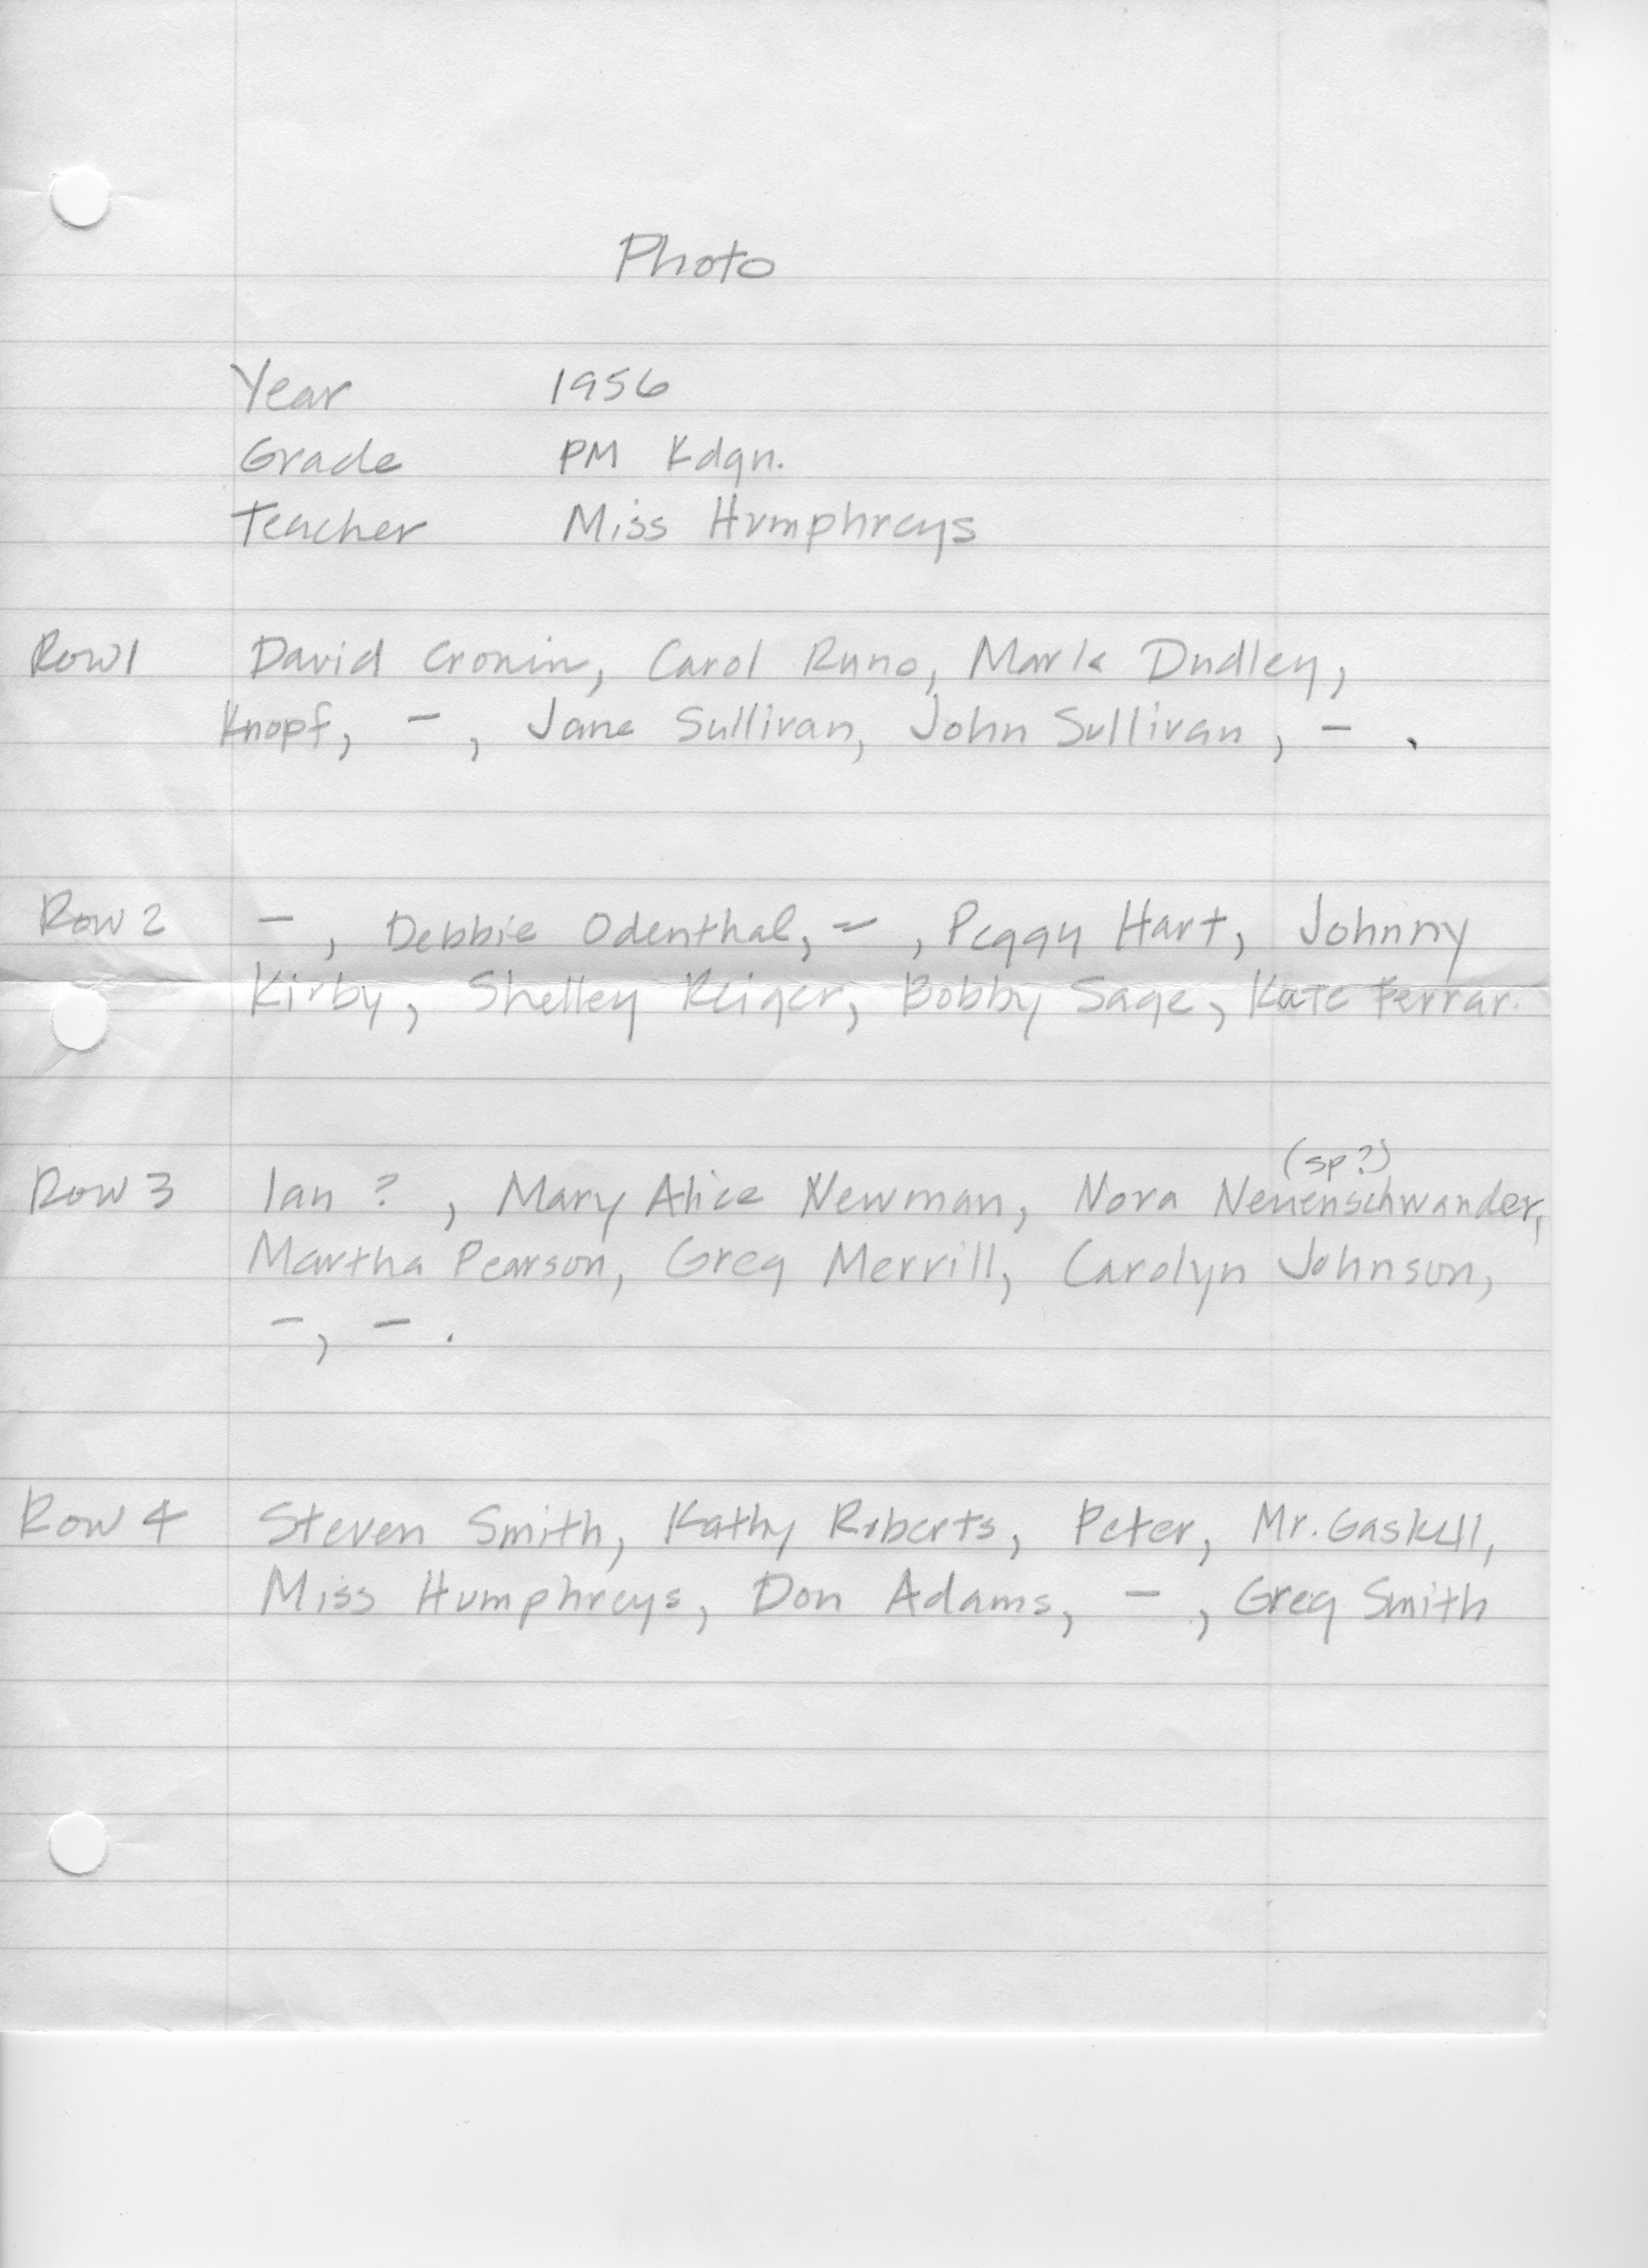 Photo
Year 1956
Grade PM Kdgn.
Teacher Miss Humphreys
Row 1 David Cronin, Carol Runo, Mark Dudley,
Knopf, –, Jane Sullivan, John Sullivan, – .
Row 2 –, Debbie Odenthal, –, Peggy Hart, Johnny
Kirby, Shelley Reiger, Bobby Sage, Kate Ferrar.
(sp?)
Row 3 Ian ?, Mary Alice Newman, Nora Neuenschwander,
Martha Pearson, Greg Merrill, Carolyn Johnson,
–, – .
Row 4 Steven Smith, Kathy Roberts, Peter, Mr. Gaskell,
Miss Humphreys, Don Adams, –, Greg Smith